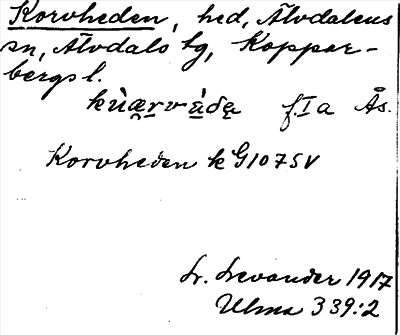 Korvheden, hed, Älvdalens
sn, Älvdals tg, Koppar-
bergs l.
kùærvàdę f.Ia Ås.
Korvheden k G107SV
L. Levander 1917
Ulma 339:2